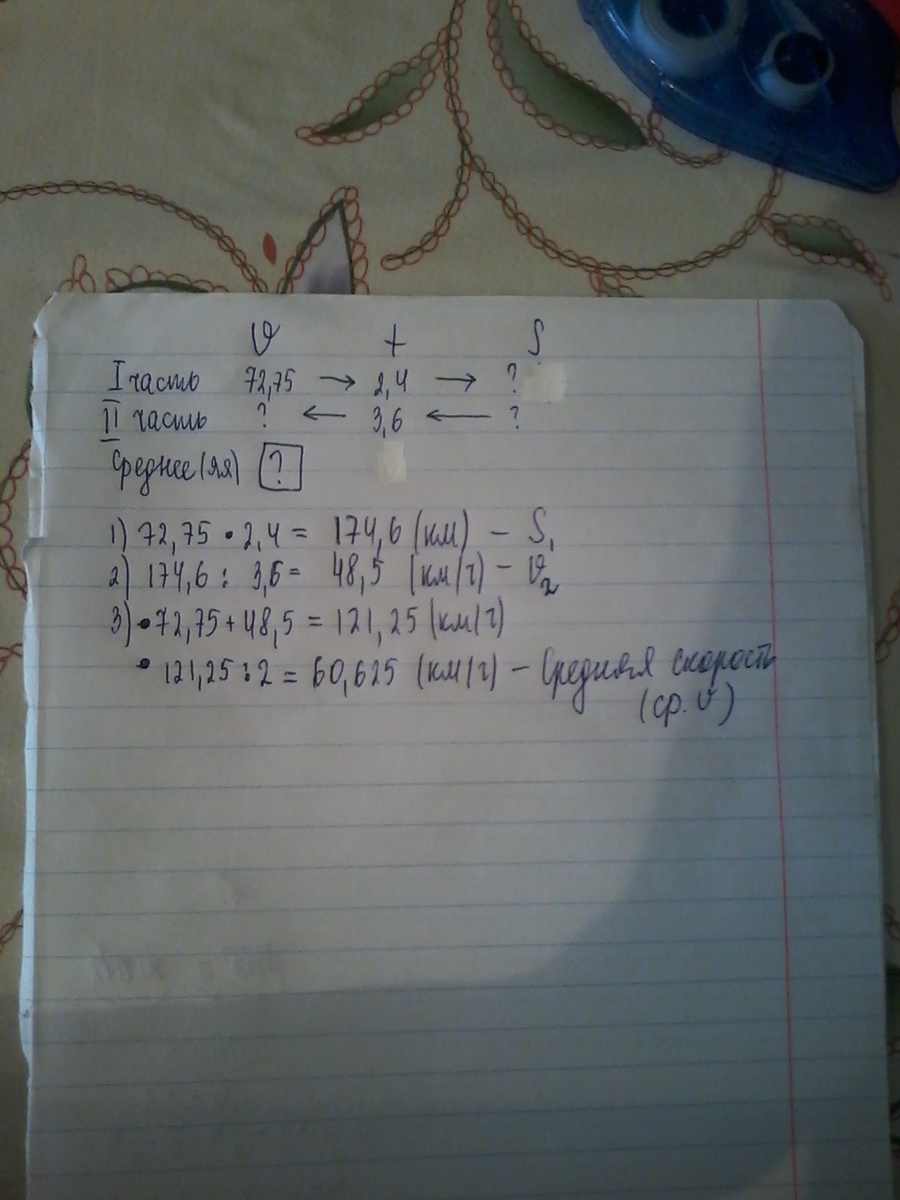 v t S
I часть 72,75 → 2,4 → ?
II часть ? ← 3,6 ← ?
Среднее(яя) ?
1) 72,75 • 2,4 = 174,6 (км) - S₁
2) 174,6 : 3,6 = 48,5 (км/ч) - v₂
3) • 72,75 + 48,5 = 121,25 (км/ч)
• 121,25 : 2 = 60,625 (км/ч) - Средняя скорость
(ср. v)